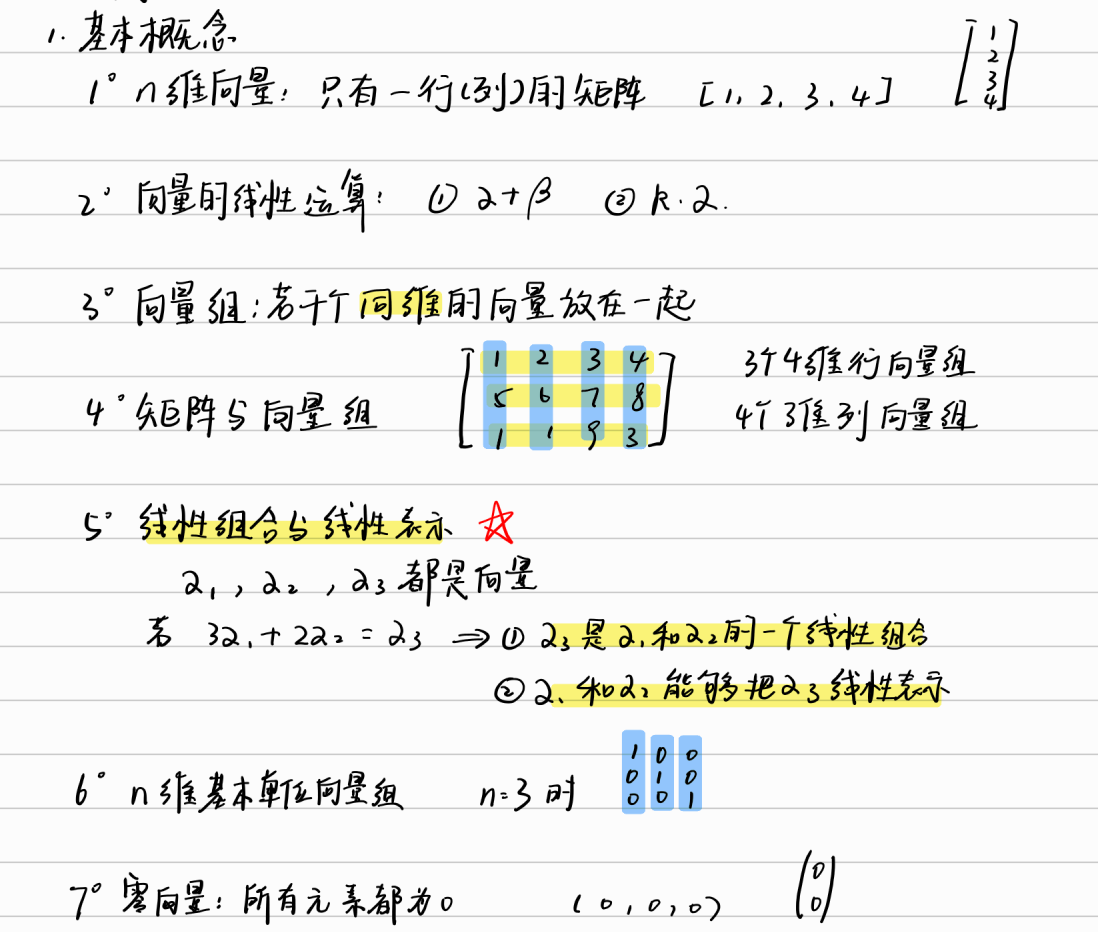 1. 基本概念
1° n维向量：只有一行(列)的矩阵 [1, 2, 3, 4] [1 2 3 4]
2° 向量的线性运算：① α+β ② k·α.
3° 向量组：若干个同维的向量放在一起
1 2 3 4
4° 矩阵与向量组 5 6 7 8
1 1 9 3
3个4维行向量组
4个3维列向量组
5° 线性组合与线性表示 ☆
α₁, α₂, α₃都是向量
若 3α₁+2α₂=α₃ ⇒ ① α₃是α₁和α₂的一个线性组合
② α₁和α₂能够把α₃线性表示
1 0 0
6° n维基本单位向量组 n=3时 0 1 0
0 0 1
7° 零向量：所有元素都为0 (0, 0, 0) (0 0)